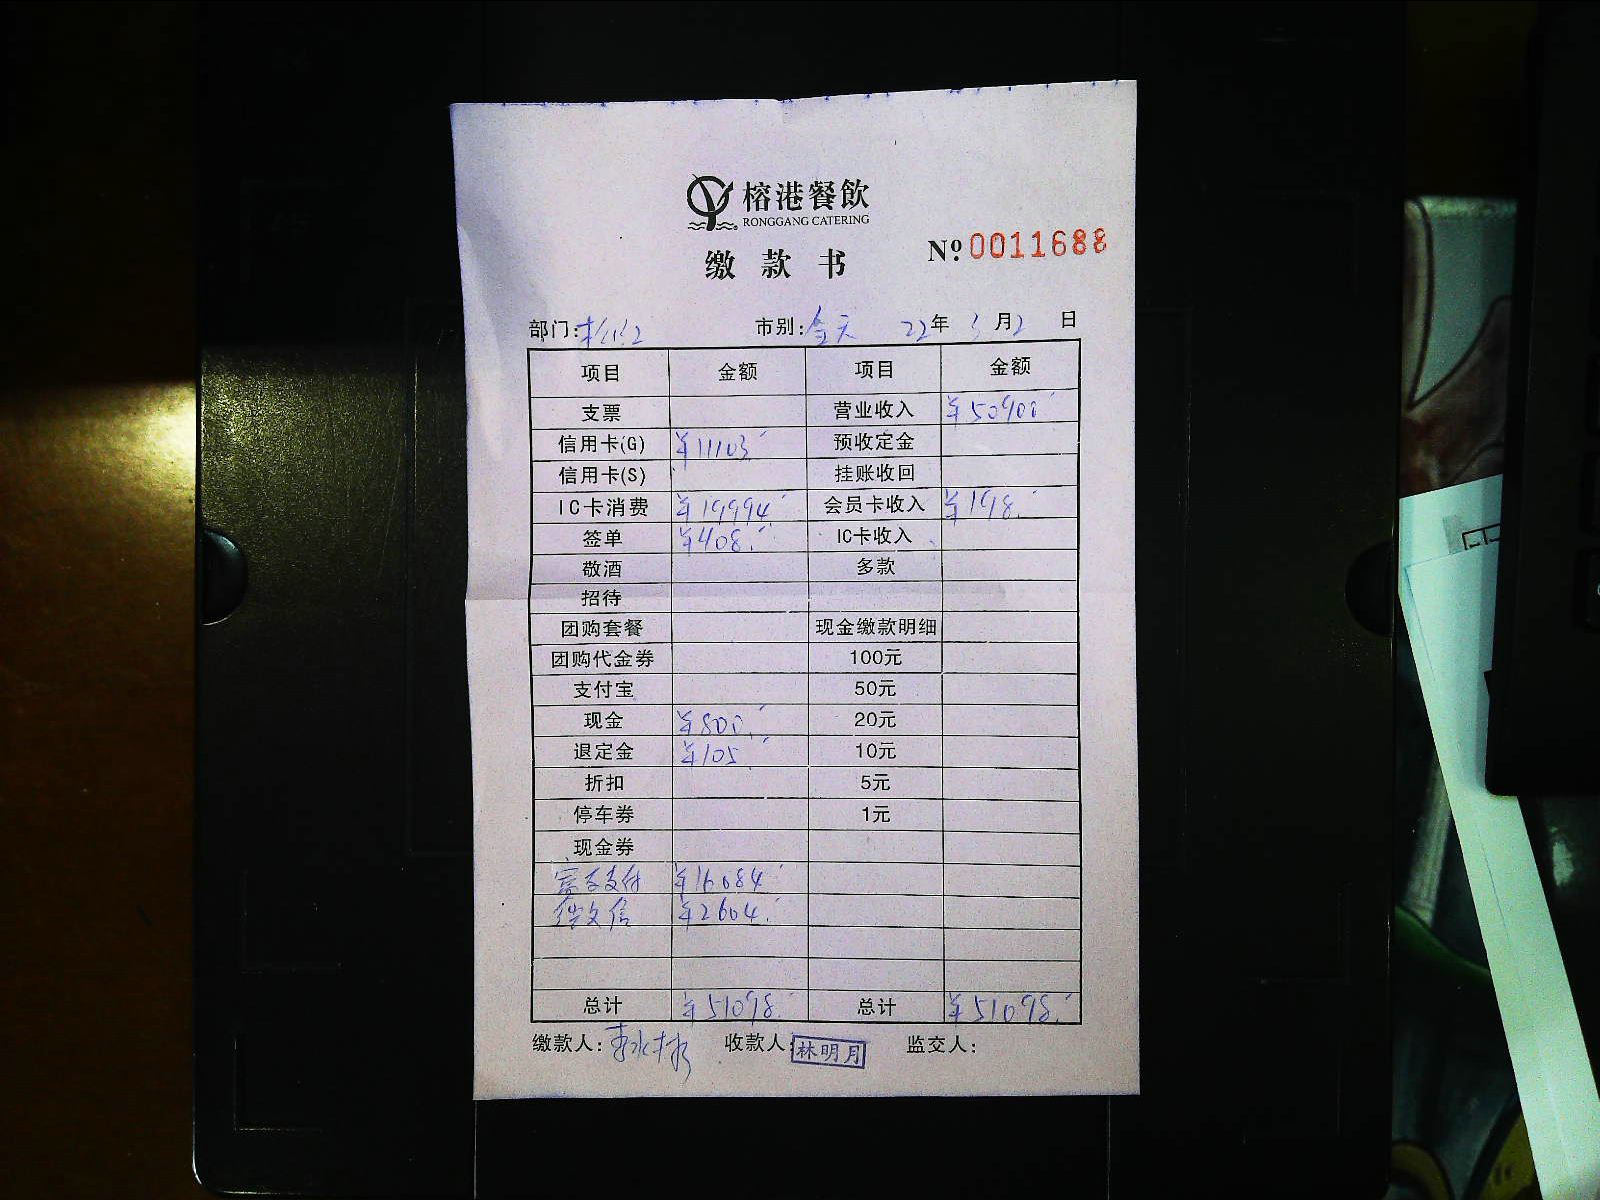 榕港餐飲
RONGGANG CATERING
缴款书 Nº 0011688
部门: 市别: 全天 22年 月2日
项目 金额 项目 金额
支票 营业收入 ¥50900.-
信用卡(G) ¥11103.- 预收定金
信用卡(S) 挂账收回
IC卡消费 ¥19994.- 会员卡收入 ¥198.-
签单 ¥408.- IC卡收入
敬酒 多款
招待
团购套餐 现金缴款明细
团购代金券 100元
支付宝 50元
现金 ¥800.- 20元
退定金 ¥105.- 10元
折扣 5元
停车券 1元
现金券
富友支付 ¥16084.-
信 ¥2604.-
总计 ¥51098.- 总计 ¥51098.-
缴款人: 收款人: 林明月 监交人: